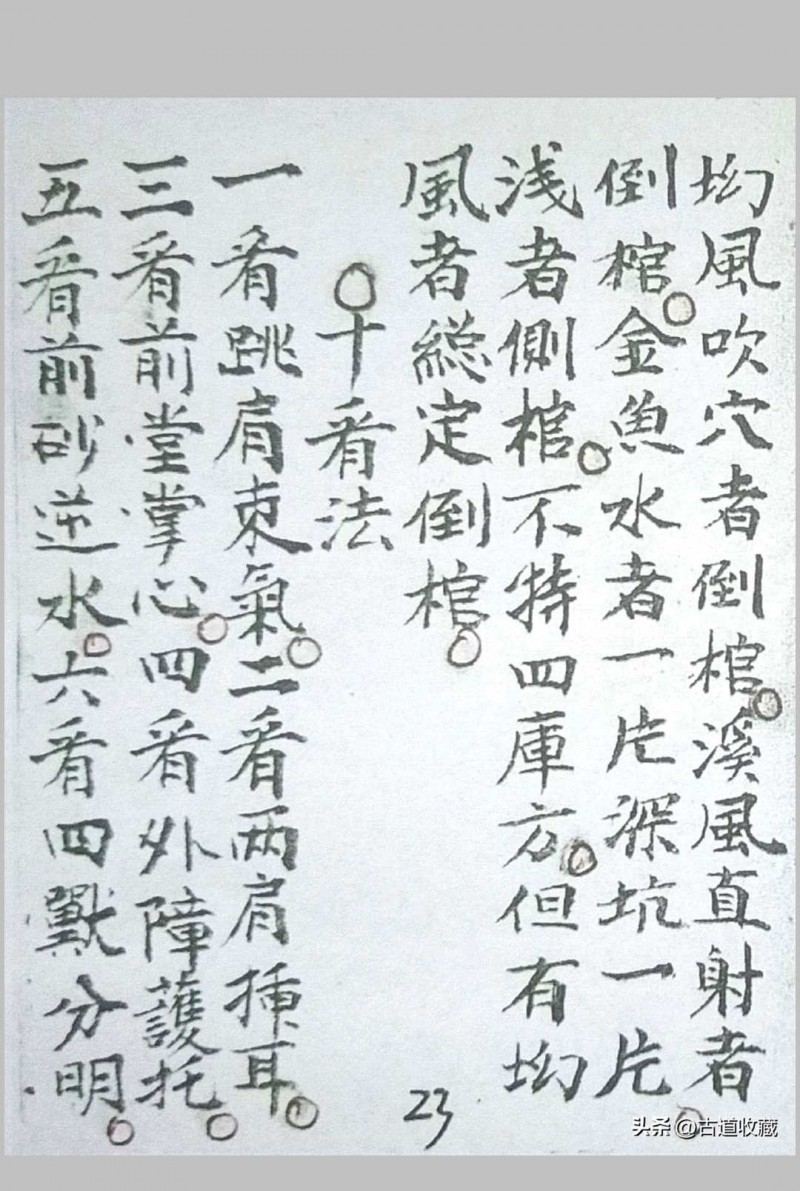 坳風吹穴者倒棺。溪風直射者
倒棺。金魚水者一片深坑一片
浅者側棺。不特四庫方。但有坳
風者総定倒棺。
○十看法
一看跳肩束氣。二看两肩挿耳。
三看前堂掌心。四看外障護托。
五看前砂逆水。六看四獸分明。
23
头条@古道收藏